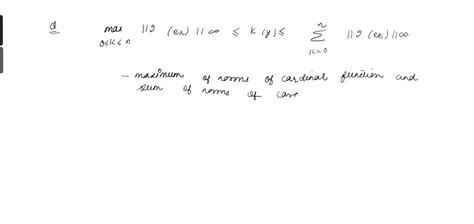 Q max 0≤k≤n ||I (ek) ||∞ ≤ K (y) ≤ n Σ k=0 ||I (ek) ||∞
– maximum of norms of cardinal function and
sum of norms of